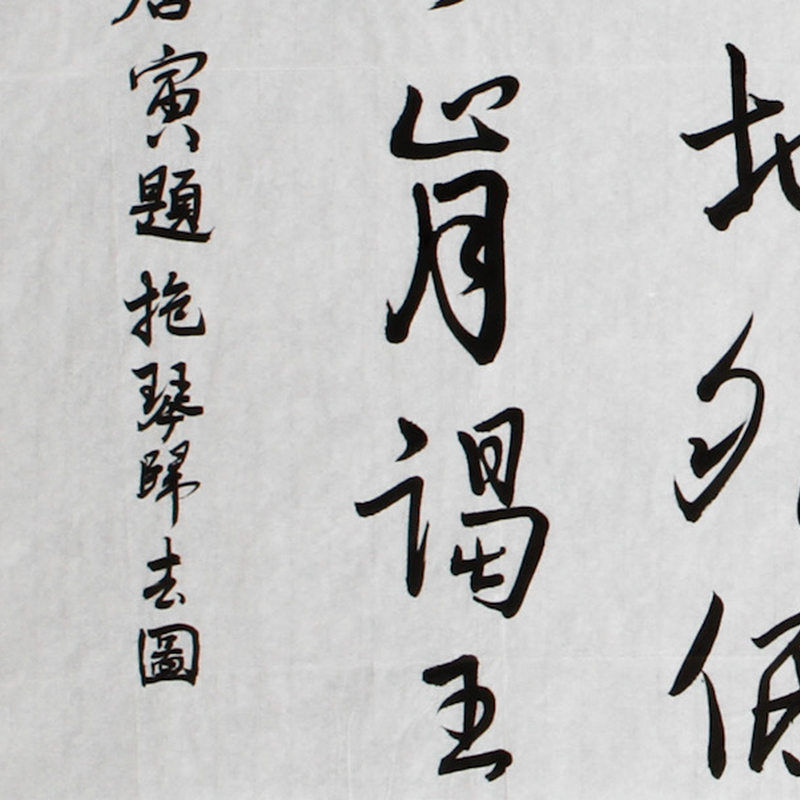 地外
肯謁王
寅題抱琴歸去圖